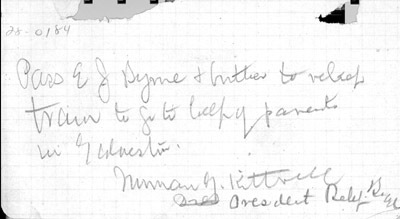 28-0184
Pass E J Byrne & brother to relief
train to go to help of parents
in Galveston.
Norman G. Kittrell
President Relief